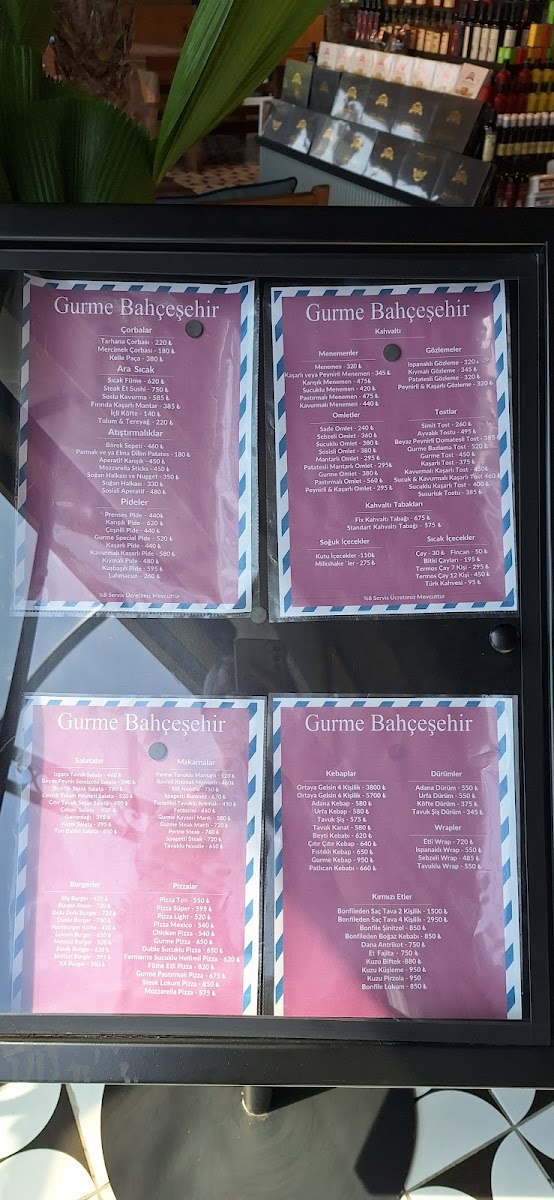 Gurme Bahçeşehir
Çorbalar
Tarhana Çorbası - 220 ₺
Mercimek Çorbası - 180 ₺
Kelle Paça - 380 ₺
Ara Sıcak
Sıcak Füme - 620 ₺
Steak Et Sushi - 750 ₺
Soslu Kavurma - 585 ₺
Fırında Kaşarlı Mantar - 385 ₺
İçli Köfte - 140 ₺
Tulum & Tereyağ - 220 ₺
Atıştırmalıklar
Börek Sepeti - 460 ₺
Parmak ve ya Elma Dilim Patates - 180 ₺
Aperatif Karışık - 450 ₺
Mozzarella Sticks - 450 ₺
Soğan Halkası ve Nugget - 350 ₺
Soğan Halkası - 330 ₺
Sosisli Aperatif - 480 ₺
Pideler
Prenses Pide - 440₺
Karışık Pide - 620 ₺
Çeşnili Pide - 440 ₺
Gurme Special Pide - 520 ₺
Kaşarlı Pide - 440 ₺
Kavurmalı Kaşarlı Pide - 580 ₺
Kıymalı Pide - 480 ₺
Kuşbaşılı Pide - 595 ₺
Lahmacun - 260 ₺
%8 Servis Ücretimiz Mevcuttur
Gurme Bahçeşehir
Kahvaltı
Menemenler
Menemen - 320 ₺
Kaşarlı veya Peynirli Menemen - 345 ₺
Karışık Menemen - 475₺
Sucuklu Menemen - 420 ₺
Pastırmalı Menemen - 475 ₺
Kavurmalı Menemen - 440 ₺
Gözlemeler
Ispanaklı Gözleme - 320 ₺
Kıymalı Gözleme - 345 ₺
Patatesli Gözleme - 320 ₺
Peynirli & Kaşarlı Gözleme - 320 ₺
Omletler
Sade Omlet - 240 ₺
Sebzeli Omlet - 260 ₺
Sucuklu Omlet - 380 ₺
Sosisli Omlet - 380 ₺
Mantarlı Omlet - 295 ₺
Patatesli Mantarlı Omlet - 295₺
Gurme Omlet - 380 ₺
Pastırmalı Omlet - 560 ₺
Peynirli & Kaşarlı Omlet - 295 ₺
Tostlar
Simit Tost - 260 ₺
Ayvalık Tostu - 495 ₺
Beyaz Peynirli Domatesli Tost - 385 ₺
Gurme Bazlama Tost - 520 ₺
Gurme Tost - 450 ₺
Kaşarlı Tost - 375 ₺
Kavurmalı Kaşarlı Tost - 450₺
Sucuk & Kavurmalı Kaşarlı Tost 460 ₺
Sucuklu Kaşarlı Tost - 400 ₺
Susurluk Tostu - 385 ₺
Kahvaltı Tabakları
Fix Kahvaltı Tabağı - 675 ₺
Standart Kahvaltı Tabağı - 575 ₺
Soğuk İçecekler
Kutu İçecekler -110₺
Milkshake 'ler - 275 ₺
Sıcak İçecekler
Çay - 30 ₺ Fincan - 50 ₺
Bitki Çayları - 195 ₺
Termos Çay 7 Kişi - 295 ₺
Termos Çay 12 Kişi - 450 ₺
Türk Kahvesi - 95 ₺
%8 Servis Ücretimiz Mevcuttur
Gurme Bahçeşehir
Salatalar
Izgara Tavuk Salata - 460 ₺
Makarnalar
Penne Tavuklu Mantarlı - 520 ₺
Fettucini - 450 ₺
Gurme Kayseri Mantı - 580 ₺
Gurme Steak Mantı - 720 ₺
Penne Steak - 760 ₺
Spagetti Steak - 720 ₺
Tavuklu Noodle - 650 ₺
Burgerler
Pizzalar
Pizza Ton - 550 ₺
Pizza Süper - 595 ₺
Pizza Light - 520 ₺
Pizza Mexico - 540 ₺
Chicken Pizza - 540 ₺
Gurme Pizza - 650 ₺
Duble Sucuklu Pizza - 650 ₺
Fermente Sucuklu Hellimli Pizza - 620 ₺
Füme Etli Pizza - 820 ₺
Gurme Pastırmalı Pizza - 675 ₺
Steak Lokum Pizza - 850 ₺
Mozzarella Pizza - 575 ₺
Gurme Bahçeşehir
Kebaplar
Ortaya Gelsin 4 Kişilik - 3800 ₺
Ortaya Gelsin 6 Kişilik - 5700 ₺
Adana Kebap - 580 ₺
Urfa Kebap - 580 ₺
Tavuk Şiş - 575 ₺
Tavuk Kanat - 580 ₺
Beyti Kebabı - 620 ₺
Çıtır Çıtır Kebap - 640 ₺
Fıstıklı Kebap - 650 ₺
Gurme Kebap - 950 ₺
Patlıcan Kebabı - 660 ₺
Dürümler
Adana Dürüm - 550 ₺
Urfa Dürüm - 550 ₺
Köfte Dürüm - 375 ₺
Tavuk Şiş Dürüm - 345 ₺
Wrapler
Etli Wrap - 720 ₺
Ispanaklı Wrap - 550 ₺
Sebzeli Wrap - 485 ₺
Tavuklu Wrap - 550 ₺
Kırmızı Etler
Bonfileden Saç Tava 2 Kişilik - 1500 ₺
Bonfileden Saç Tava 4 Kişilik - 2950 ₺
Bonfile Şinitzel - 850 ₺
Bonfileden Boğaz Kebabı - 850 ₺
Dana Antrikot - 750 ₺
Et Fajita - 750 ₺
Kuzu Biftek - 880 ₺
Kuzu Küşleme - 950 ₺
Kuzu Pirzola - 950 ₺
Bonfile Lokum - 850 ₺